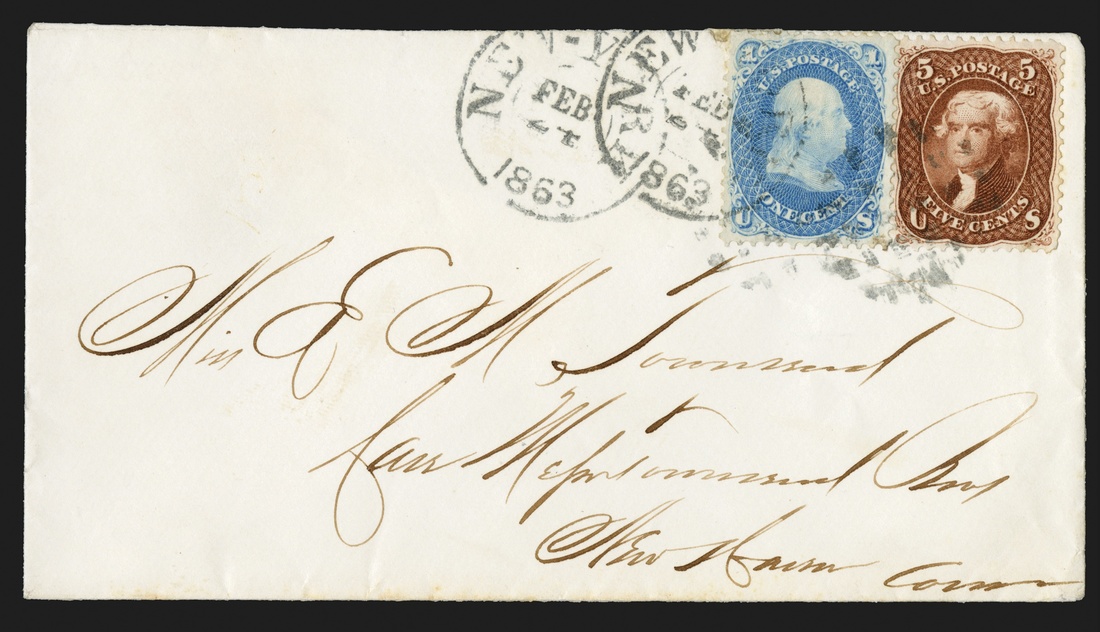 NEW-Y
FEB
24
1863
NEW
FEB
24
1863
1 1
U.S. POSTAGE
ONE CENT
U S
5 5
U.S. POSTAGE
FIVE CENTS
U S
Miss E M Townsend
Care Messrs Townsend Bros
New Haven Conn